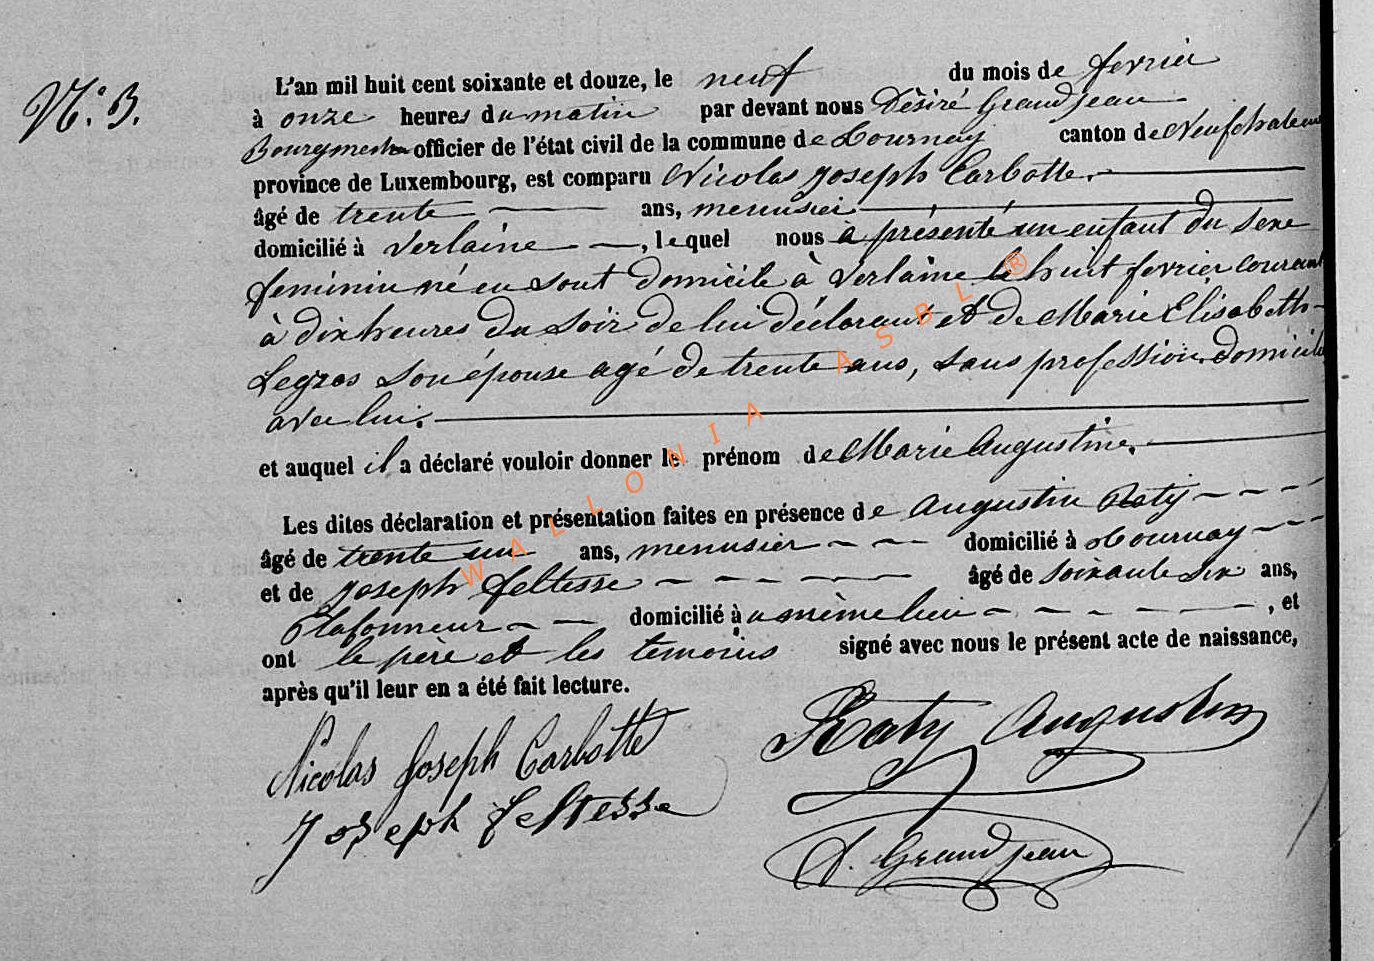 N.° 3.
L'an mil huit cent soixante et douze, le neuf du mois de fevrier
à onze heures du matin par devant nous Désiré Grandjean
Bourgmestre officier de l'état civil de la commune de Tournay canton de Neufchateau
province de Luxembourg, est comparu Nicolas Joseph Carbotte.
âgé de trente ans, menuisier
domicilié à Verlaine, lequel nous à présenté un enfant du sexe
feminin né en sout domicile à Verlaine le huit fevrier courant
à dix heures du soir de lui déclarant et de Marie Elisabeth
Legros son épouse agé de trente ans, sans profession domicilié
avec lui.
et auquel il a déclaré vouloir donner le prénom de Marie Augustine.
Les dites déclaration et présentation faites en présence de Augustin Raty
âgé de trente un ans, menusier domicilié à Tournay
et de Joseph Feltesse âgé de soixante six ans,
Plafonneur domicilié au même lieu, et
ont le père et les temoins signé avec nous le présent acte de naissance,
après qu'il leur en a été fait lecture.
Nicolas Joseph Carbotte
Raty Augustin
Joseph Feltesse
D. Grandjean
WALLONIA ASBL ®